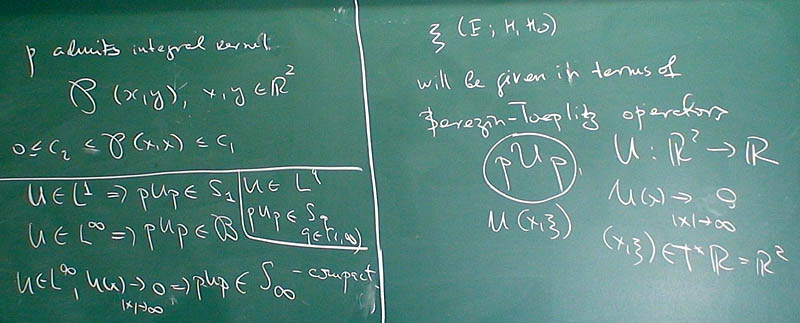 p admits integral kernel
𝒫(x,y), x,y ∈ ℝ²
0 ≤ C₂ ≤ 𝒫(x,x) ≤ C₁
U ∈ L¹ ⇒ pUp ∈ S₁
U ∈ L^∞ ⇒ pUp ∈ B
U ∈ L^q
pUp ∈ S_q
q ∈ [1,∞)
U ∈ L^∞, U(x) → 0 ⇒ pUp ∈ S_∞ - compact
|x|→∞
ξ (E; H, H₀)
will be given in terms of
Berezin-Toeplitz operators
pUp, U : ℝ² → ℝ
U(x) → 0
|x|→∞
U(x,ξ)
(x,ξ) ∈ T*ℝ = ℝ²